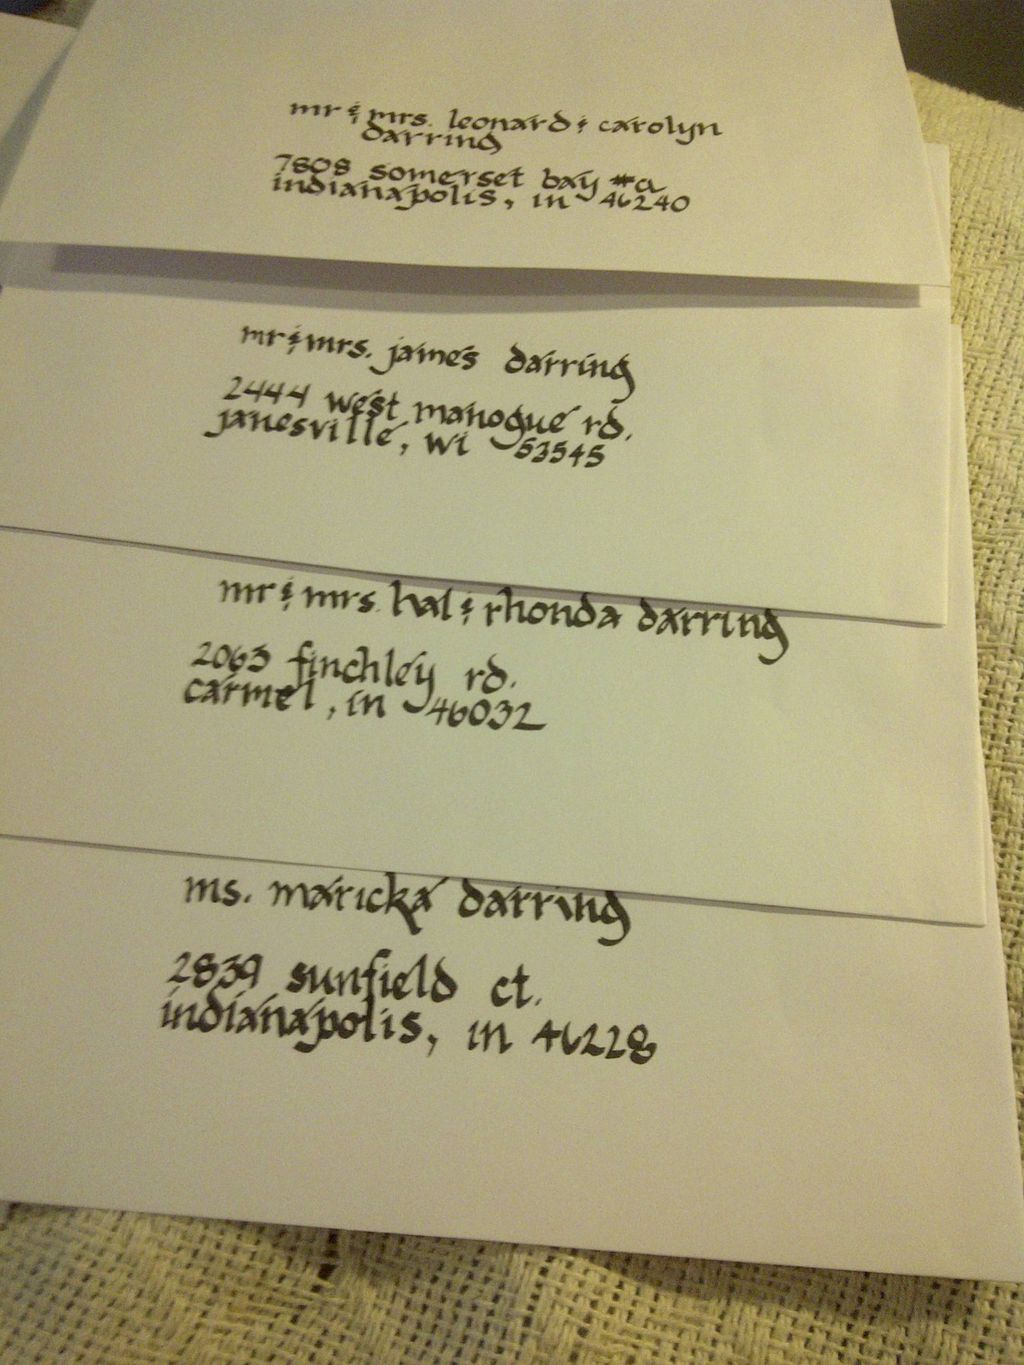 mr & mrs. leonard & carolyn
darring
7808 somerset bay #a
indianapolis, in 46240
mr & mrs. james darring
2444 west manogue rd.
janesville, wi 53545
mr & mrs. hal & rhonda darring
2063 finchley rd.
carmel, in 46032
ms. maricka darring
2839 sunfield ct.
indianapolis, in 46228